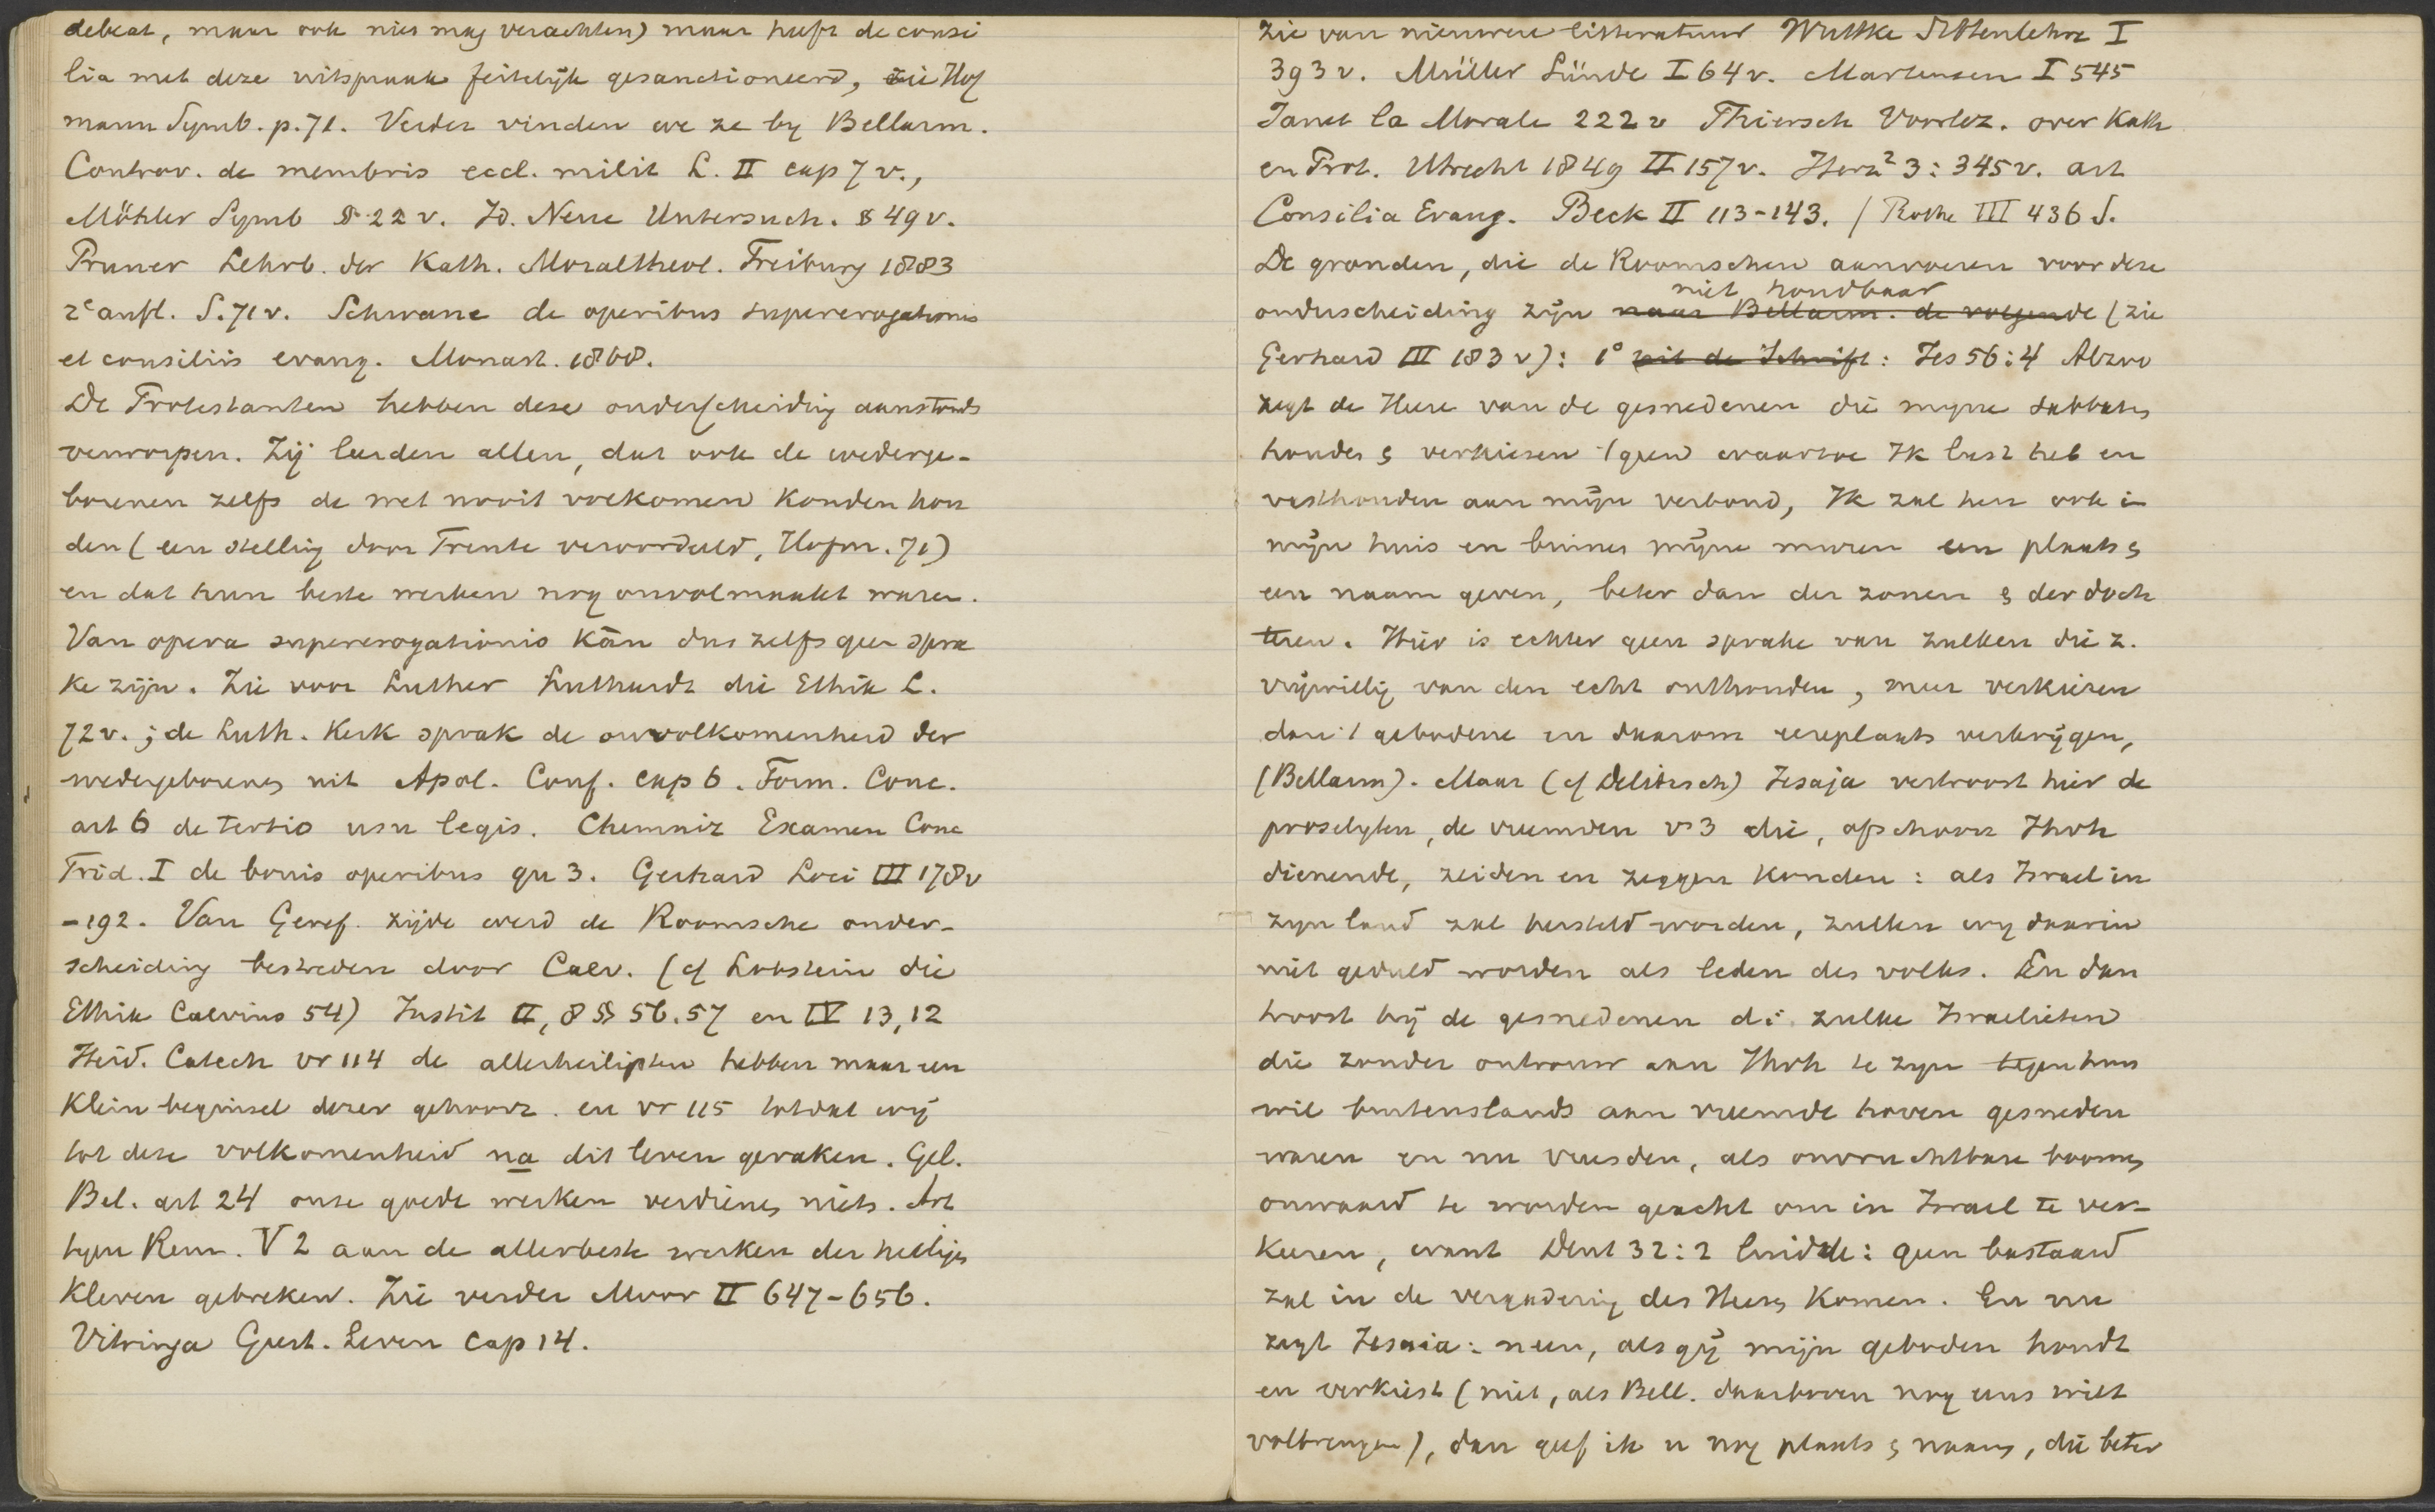 debeat, maar ook niet mag verachten) maar heeft de consi
lia met deze uitspraak feitelijk gesanctioneerd, zie Hof
mann Symb. p. 71. Verder vinden we ze by Bellarm.
Controv. de membris eccl. milit L. II cap 7 v.,
Möhler Symb § 22 v. Id. Neue Untersuch. § 49 v.
Pruner Lehrb. der Kath. Moraltheol. Freiburg 1883
2e aufl. S. 71 v. Schwane de operibus supererogationis
et consiliis evang. Monast. 1868.
De Protestanten hebben deze onderscheiding aanstonds
verworpen. Zij leerden allen, dat ook de wederge-
borenen zelfs de wet nooit volkomen konden hou
den (een stelling door Trente veroordeeld, Hofm. 71)
en dat hun beste werken nog onvolmaakt waren.
Van opera supererogationis kān dus zelfs geen spra
ke zijn. Zie voor Luther Luthardt die Ethik L.
72 v.; de Luth. Kerk sprak de onvolkomenheid der
wedergeborenen uit Apol. Conf. cap 6. Form. Conc.
art 6 de tertio usu legis. Chemniz Examen Conc
Trid. I de bonis operibus qu 3. Gerhard Loci III 178 v
-192. Van Geref. zijde werd de Roomsche onder-
scheiding bestreden door Calv. (cf Lobstein die
Ethik Calvins 54) Instit II, 8 §§ 56.57 en IV 13,12
Heid. Catech vr 114 de allerheiligsten hebben maar een
klein beginsel dezer gehoorz. en vr 115 totdat wij
tot deze volkomenheid na dit leven geraken. Gel.
Bel. art 24 onze goede werken verdienen niets. Art
tegen Rem. V 2 aan de allerbeste werken der heiligen
kleven gebreken. Zie verder Moor II 647-656.
Vitringa Geest. Leven cap 14.
zie van nieuwere litteratuur Wuttke Sittenlehre I
393 v. Müller Sünde I 64 v. Martensen I 545
Janet la Morale 222 v Thiersch Voorlez. over Kath
en Prot. Utrecht 1849 II 157 v. Herz² 3:345 v. art
Consilia Evang. Beck II 113-143. / Rothe III 436 f.
De gronden, die de Roomschen aanvoeren voor deze
niet houdbaar
onderscheiding zijn naar Bellarm. de volgende (zie
Gerhard III 183 v): 1° uit de Schrift: Jes 56:4 Alzoo
zegt de Heere van de gesnedenen die myne sabbaten
houden & verkiezen tgeen waartoe Ik lust heb en
vasthouden aan mijn verbond, Ik zal hen ook in
mijn huis en binnen mijne muren een plaats &
een naam geven, beter dan der zonen & der doch
teren. Hier is echter geen sprake van zulken die z.
vrijwillig van den echt onthouden, meer verkiezen
dan 't gebodene en daarom eereplaats verkrijgen,
(Bellarm). Maar (cf Delitzsch) Jesaja vertroost hier de
proselyten, de vreemden vs 3 die, ofschoon Jhvh
dienende, zeiden en zeggen konden: als Israel in
zyn land zal hersteld worden, zullen wy daarin
niet geduld worden als leden des volks. En dan
troost hij de gesnedenen di. zulke Israelieten
die zonder ontrouw aan Jhvh te zyn tegen hun
wil buitenslands aan vreemde hoven gesneden
waren en nu vreesden, als onvruchtbare boomen
onwaard te worden geacht om in Israel te ver-
keeren, want Deut 32:2 luidde: geen bastaard
zal in de vergadering des Heeren komen. En nu
zegt Jesaia: neen, als gij mijn geboden houdt
en verkiest (niet, als Bell. daarboven nog eens wilt
volbrengen), dan geef ik u nog plaats & naam, die beter